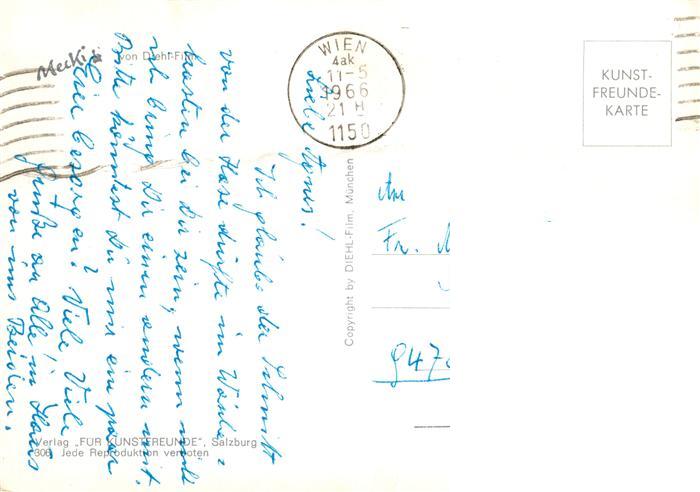 Mecki
von Diehl-Film
WIEN
4ak
11-5
1966
21 H
1150
KUNST-
FREUNDE-
KARTE
Liebe Agnes!
Ich glaube der Schnitt
von der Hose dürfte im Wäsche-
kasten bei Dir sein, wenn nicht
ich bring Dir einen andern mit.
Bitte könntest Du mir ein paar
Eier besorgen? Viele Viele
Grüße an Alle im Haus
von uns Beiden.
Copyright by DIEHL-Film, München
An
Fr.
947
Verlag „FÜR KUNSTFREUNDE", Salzburg
306 Jede Reproduktion verboten